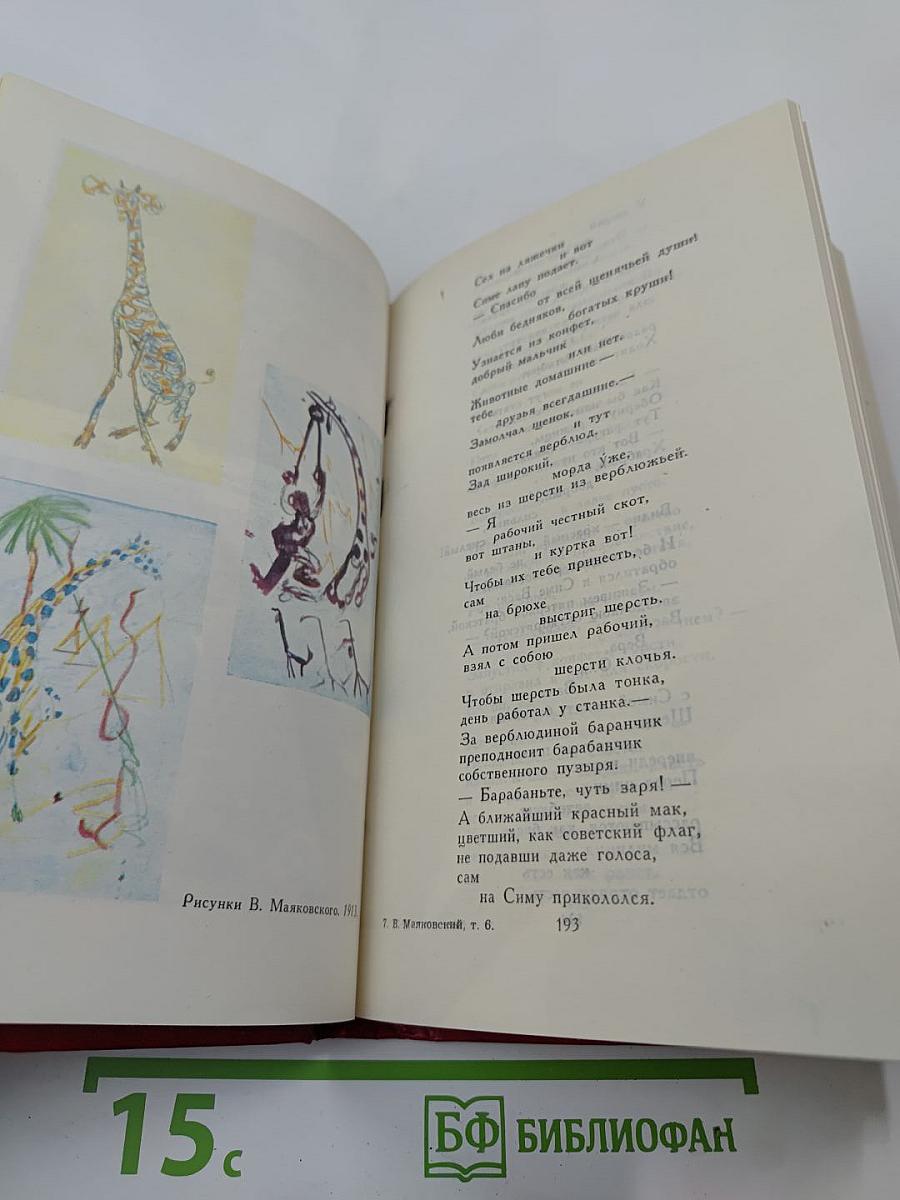 Рисунки В. Маяковского. 1913.
Сел на ляжечки
и вот
Симе лапу подает.
— Спасибо
от всей щенячьей души!
Люби бедняков,
богатых круши!
Узнается из конфет,
добрый мальчик
или нет.
Животные домашние —
тебе
друзья всегдашние.—
Замолчал щенок,
и тут
появляется верблюд.
Зад широкий,
морда у́же,
весь из шерсти из верблюжьей.
— Я
рабочий честный скот,
вот штаны,
и куртка вот!
Чтобы их тебе принесть,
сам
на брюхе
выстриг шерсть.
А потом пришел рабочий,
взял с собою
шерсти клочья.
Чтобы шерсть была тонка,
день работал у станка.—
За верблюдиной баранчик
преподносит барабанчик
собственного пузыря.
— Барабаньте, чуть заря! —
А ближайший красный мак,
цветший, как советский флаг,
не подавши даже голоса,
сам
на Симу прикололся.
7. В. Маяковский, т. 6.
193
15с
БФ БИБЛИОФАН